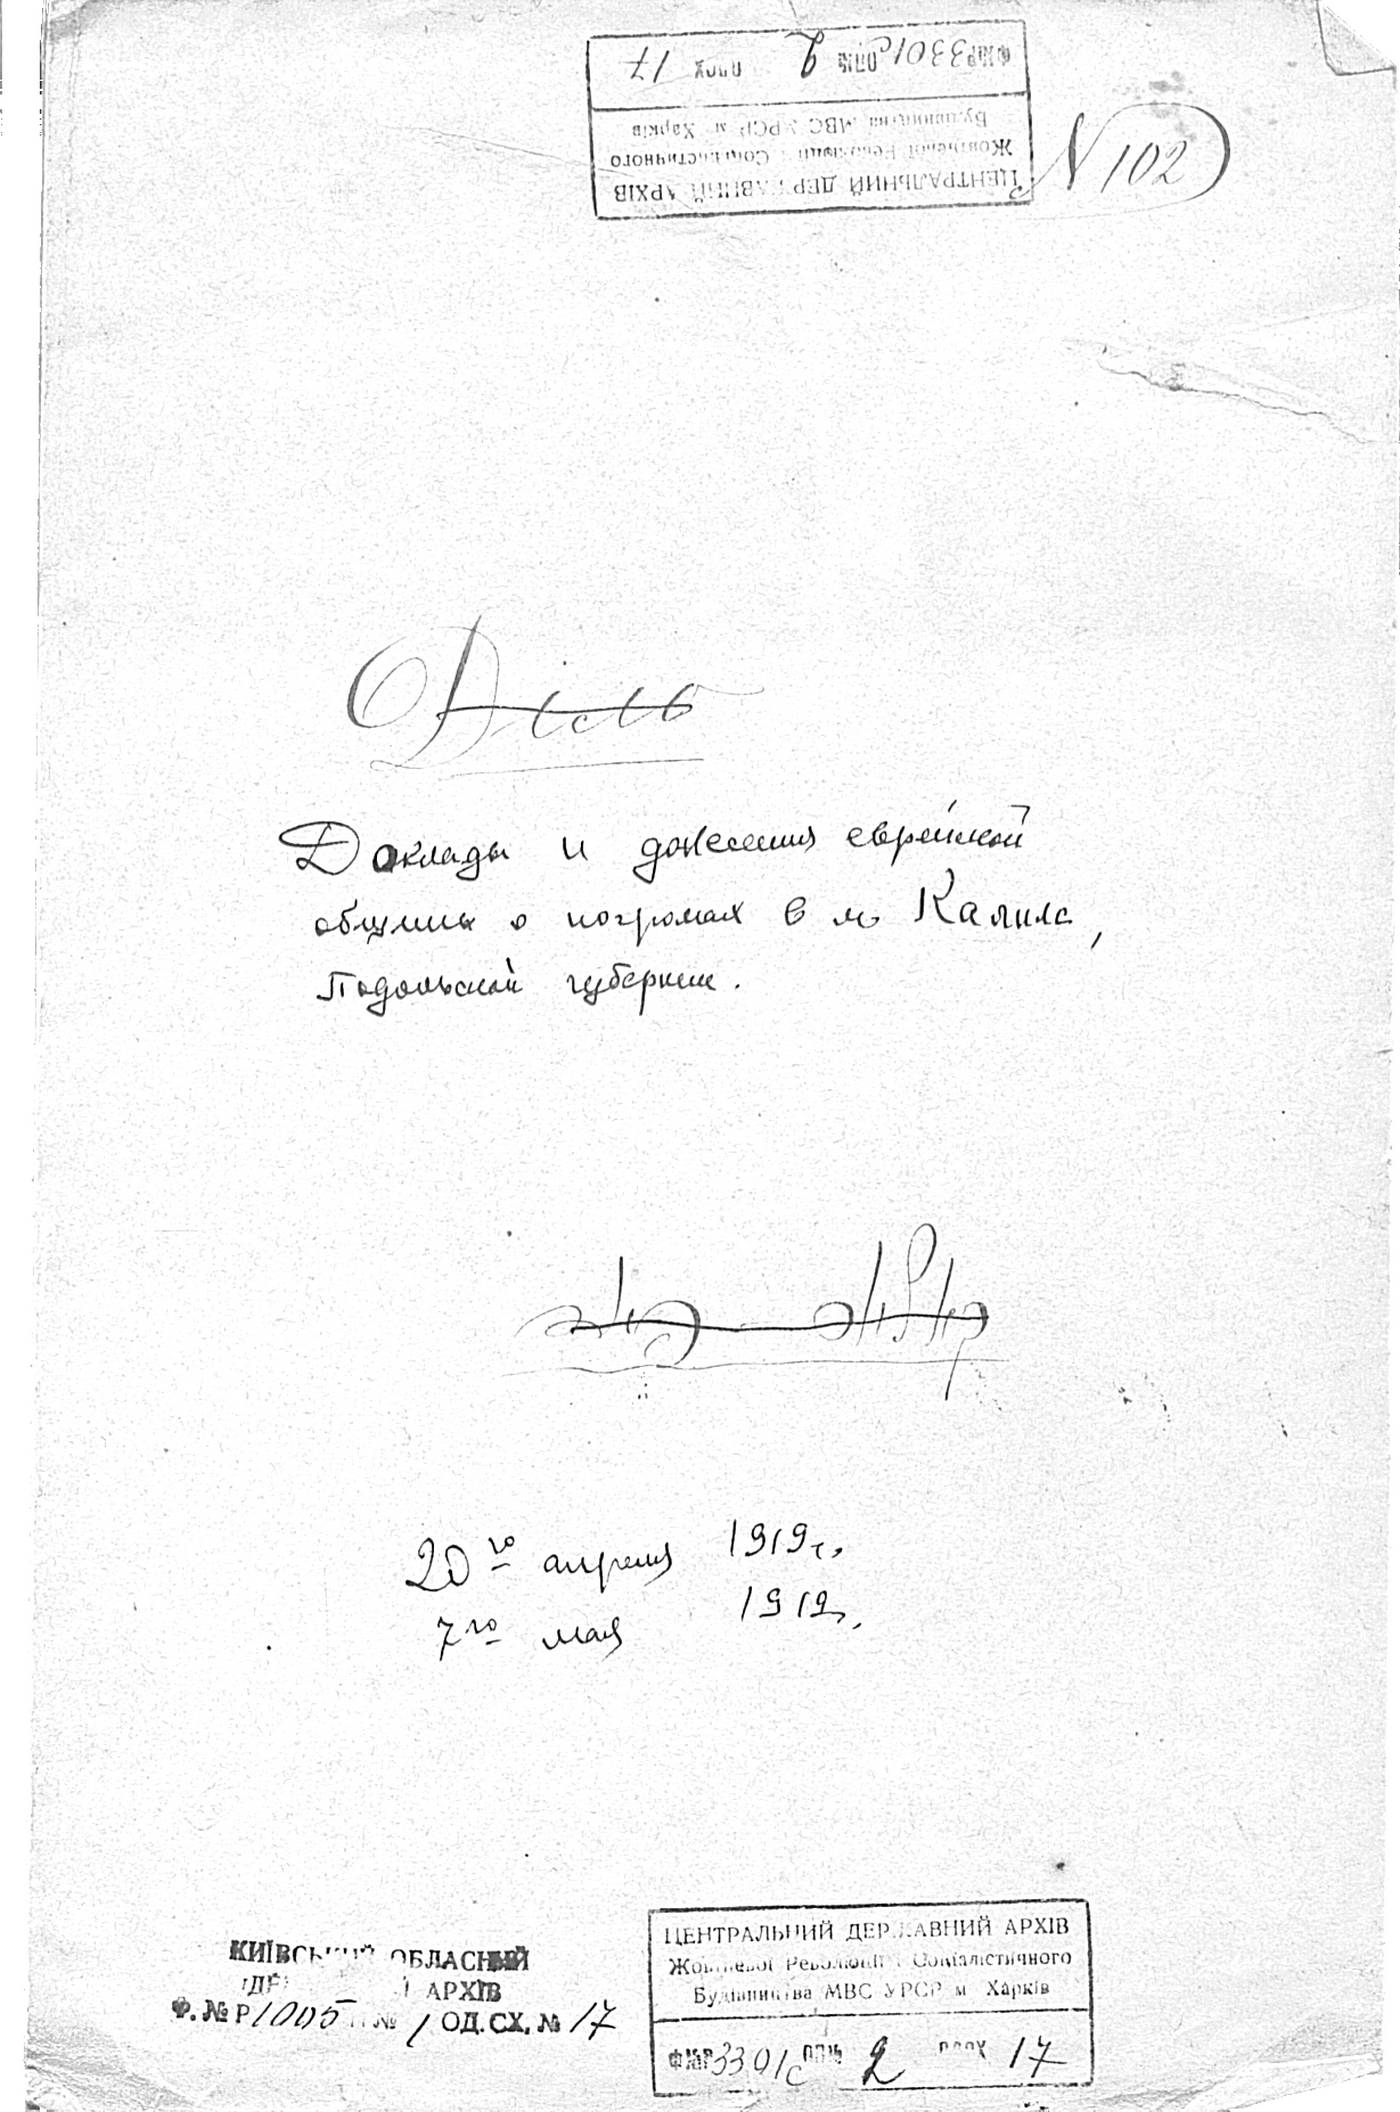 ЦЕНТРАЛЬНИЙ ДЕРЖАВНИЙ АРХІВ
Жовтневої Революції і Соціалістичного
Будівництва МВС УРСР м Харків
Ф№Р3301с ОП№ 2 ОДСХ 17
N 102
Доклады и донесения еврейской
общины о погромах в м Калила,
Подольской губернии.
20го апреля 1919г.
7го мая 1919г.
КИЇВСЬКИЙ ОБЛАСНИЙ
ДЕРЖАВНИЙ АРХІВ
Ф. № Р1005 П № 1 ОД. СХ. № 17
ЦЕНТРАЛЬНИЙ ДЕРЖАВНИЙ АРХІВ
Жовтневої Революції і Соціалістичного
Будівництва МВС УРСР м Харків
Ф№Р3301с ОП№ 2 ОДСХ 17